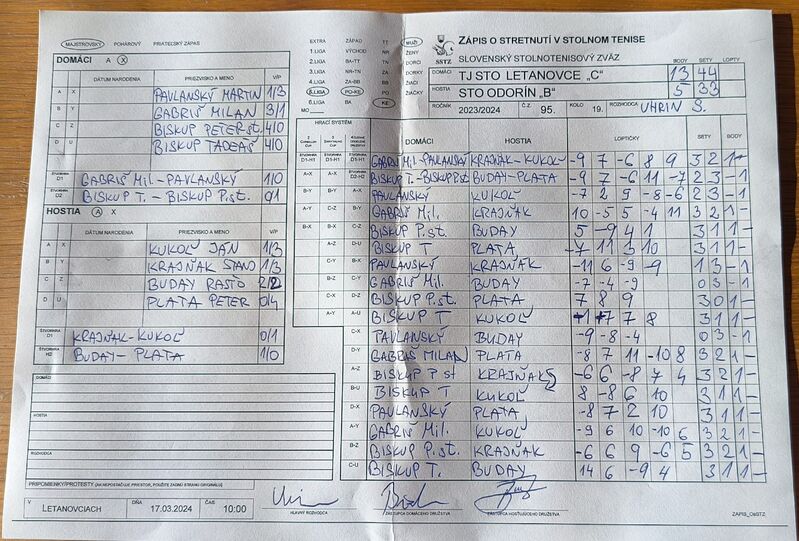 MAJSTROVSKÝ POHÁROVÝ PRIATEĽSKÝ ZÁPAS
EXTRA ZÁPAD TT MUŽI
1.LIGA VÝCHOD NR ŽENY
2.LIGA BA-TT TN DORKY
3.LIGA TN-NR ZA DORCI
4.LIGA ZA-BB BB ŽIACI
5.LIGA PO-KE PO ŽIAČKY
6.LIGA BA KE
MO
SSTZ
ZÁPIS O STRETNUTÍ V STOLNOM TENISE
SLOVENSKÝ STOLNOTENISOVÝ ZVÄZ
BODY SETY
DOMÁCI TJ STO LETANOVCE „C" 13 44
HOSTIA STO ODORÍN „B" 5 33
ROČNÍK 2023/2024 Č.Z. 95. KOLO 19. ROZHODCA UHRIN S.
DOMÁCI A X
DÁTUM NARODENIA PRIEZVISKO A MENO V/P
A X PAVLANSKÝ MARTIN 1/3
B Y GABRIŠ MILAN 3/1
C Z BISKUP PETER st. 4/0
D U BISKUP TADEÁŠ 4/0
ŠTVORHRA D1 GABRIŠ Mil.-PAVLANSKÝ 1/0
ŠTVORHRA D2 BISKUP T. - BISKUP P.st. 0/1
HOSTIA A X
DÁTUM NARODENIA PRIEZVISKO A MENO V/P
A X KUKOĽ JÁN 1/3
B Y KRAJŇAK STANO 1/3
C Z BUDAY RASŤO 2/2
D U PLATA PETER 0/4
ŠTVORHRA H1 KRAJŇAK-KUKOĽ 0/1
ŠTVORHRA H2 BUDAY-PLATA 1/0
HRACÍ SYSTÉM DOMÁCI HOSTIA LOPTIČKY SETY BODY
ŠTVORHRA D1-H1 GABRIŠ Mil-PAVLANSKÝ KRAJŇAK-KUKOĽ -9 7 -6 8 9 3 2 1 -
BISKUP T.-BISKUP P.st BUDAY-PLATA -9 7 -6 11 -7 2 3 - 1
PAVLANSKÝ KUKOĽ -7 2 9 -8 -6 2 3 - 1
GABRIŠ Mil. KRAJŇAK 10 -5 5 -4 11 3 2 1 -
BISKUP P.st. BUDAY 5 -9 4 1 3 1 1 -
BISKUP T PLATA -7 11 3 10 3 1 1 -
PAVLANSKÝ KRAJŇAK -11 6 -9 -9 1 3 - 1
GABRIŠ Mil. BUDAY -7 -4 -9 0 3 - 1
BISKUP P.st. PLATA 7 8 9 3 0 1 -
BISKUP T KUKOĽ 7 7 8 3 1 1 -
PAVLANSKÝ BUDAY -9 -8 -4 0 3 - 1
GABRIŠ MILAN PLATA -8 7 11 -10 8 3 2 1 -
BISKUP P st KRAJŇAK -6 6 -8 7 4 3 2 1 -
BISKUP T KUKOĽ 8 -8 6 10 3 1 1 -
PAVLANSKÝ PLATA -8 7 2 10 3 1 1 -
GABRIŠ Mil. KUKOĽ -9 6 10 -10 6 3 2 1 -
BISKUP P.st. KRAJŇAK -6 6 9 -6 5 3 2 1 -
BISKUP T. BUDAY 14 6 -9 4 3 1 1 -
DOMÁCI
HOSTIA
ROZHODCA
PRIPOMIENKY/PROTESTY (AK NEPOSTAČUJE PRIESTOR, POUŽITE ZADNÚ STRANU ORIGINÁLU)
V LETANOVCIACH DŇA 17.03.2024 ČAS 10:00
HLAVNÝ ROZHODCA ZÁSTUPCA DOMÁCEHO DRUŽSTVA ZÁSTUPCA HOSŤUJÚCEHO DRUŽSTVA
ZAPIS_OsSTZ